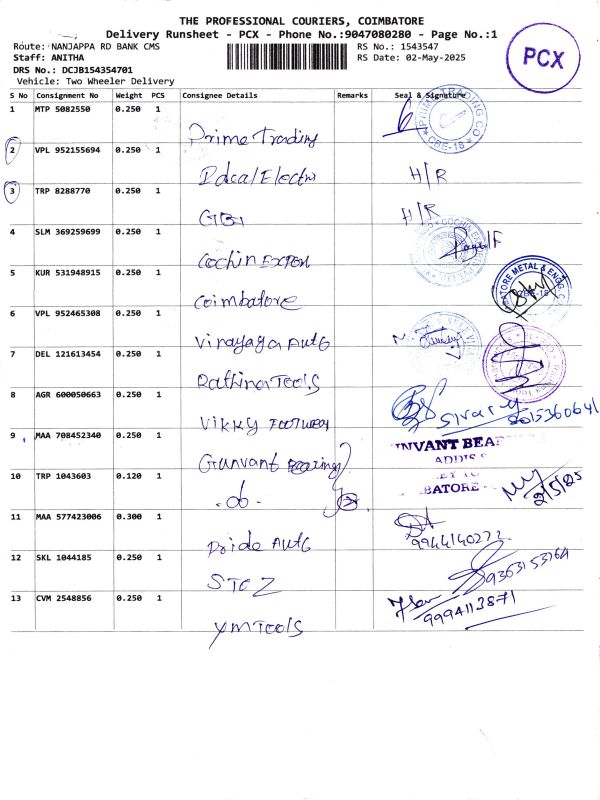 THE PROFESSIONAL COURIERS, COIMBATORE
Delivery Runsheet - PCX - Phone No.:9047080280 - Page No.:1
Route: NANJAPPA RD BANK CMS
RS No.: 1543547
Staff: ANITHA
RS Date: 02-May-2025
DRS No.: DCJB154354701
Vehicle: Two Wheeler Delivery
PCX
S No Consignment No Weight PCS Consignee Details Remarks Seal & Signature
1 MTP 5082550 0.250 1 Prime Trading
PRIME TRADING CO CBE-18
2 VPL 952155694 0.250 1 Ideal Electri H/R
3 TRP 8288770 0.250 1 GBI H/R
4 SLM 369259699 0.250 1 Cochin Export
5 KUR 531948915 0.250 1 Coimbatore
6 VPL 952465308 0.250 1 Vinayaga Auto
7 DEL 121613454 0.250 1 Rathina Tools
8 AGR 600050663 0.250 1 Vikky Footwear
9 MAA 708452340 0.250 1 Gunvant Bearing
10 TRP 1043603 0.120 1 -do- 2
2/5/25
11 MAA 577423006 0.300 1 Pride Auto
9944140272
12 SKL 1044185 0.250 1 STCZ
9363153764
13 CVM 2548856 0.250 1 YM Tools
9994113871